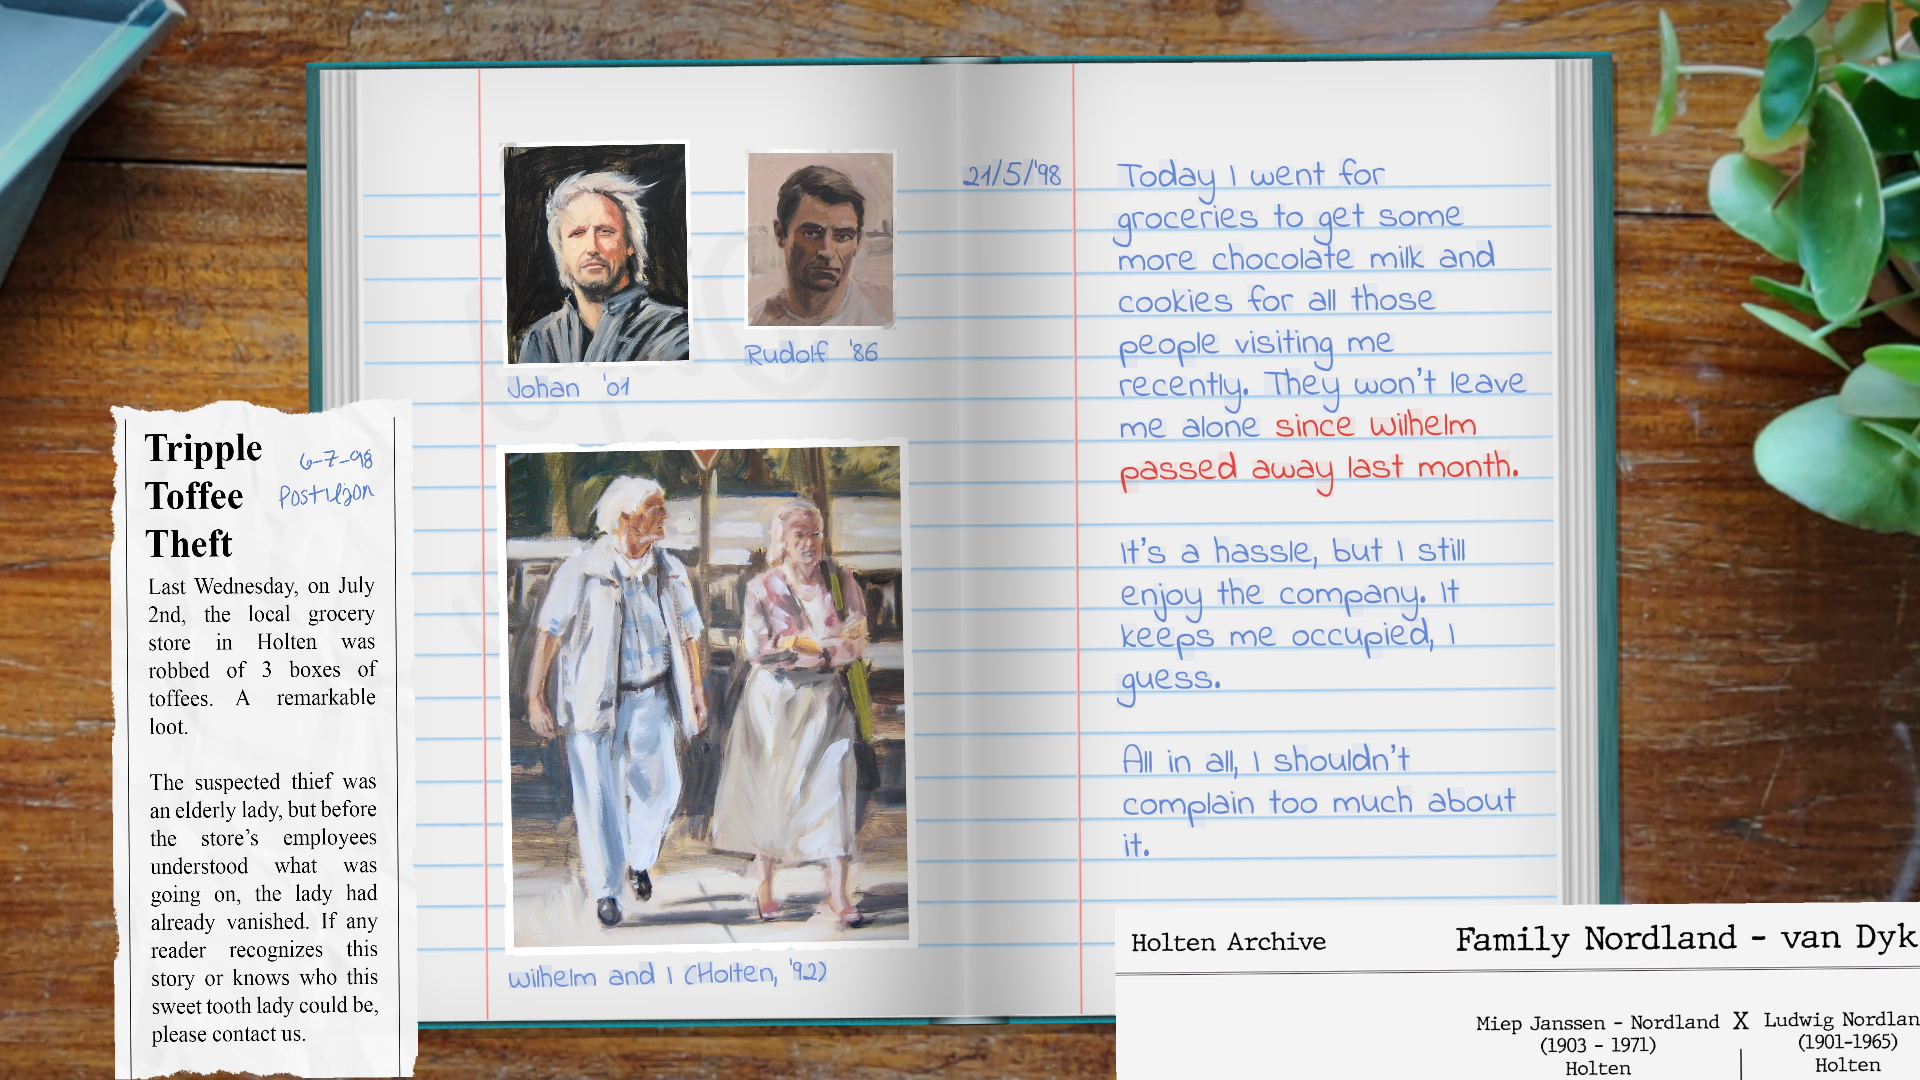 Johan '01
Rudolf '86
Wilhelm and I (Holten, '92)
21/5/'98
Today I went for
groceries to get some
more chocolate milk and
cookies for all those
people visiting me
recently. They won't leave
me alone since wilhelm
passed away last month.
It's a hassle, but I still
enjoy the company. It
keeps me occupied, I
guess.
All in all, I shouldn't
complain too much about
it.
Tripple
Toffee
Theft
6-7-98
Postiljon
Last Wednesday, on July
2nd, the local grocery
store in Holten was
robbed of 3 boxes of
toffees. A remarkable
loot.
The suspected thief was
an elderly lady, but before
the store's employees
understood what was
going on, the lady had
already vanished. If any
reader recognizes this
story or knows who this
sweet tooth lady could be,
please contact us.
Holten Archive
Family Nordland - van Dyk
Miep Janssen - Nordland X Ludwig Nordlan
(1903 - 1971)
Holten
(1901-1965)
Holten